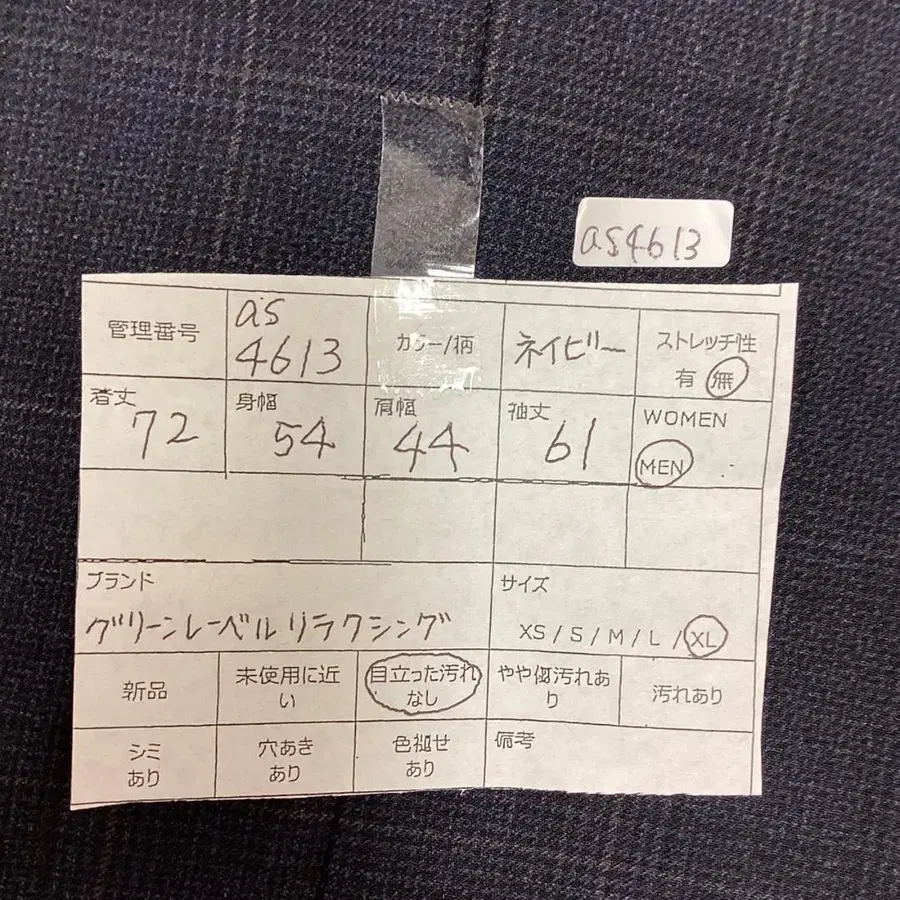 as4613
管理番号
as
4613
カラー/柄
ネイビー
ストレッチ性
有 無
着丈
72
身幅
54
肩幅
44
袖丈
61
WOMEN
MEN
ブランド
グリーンレーベルリラクシング
サイズ
XS / S / M / L / XL
新品
未使用に近
い
目立った汚れ
なし
やや傷汚れあ
り
汚れあり
シミ
あり
穴あき
あり
色褪せ
あり
備考